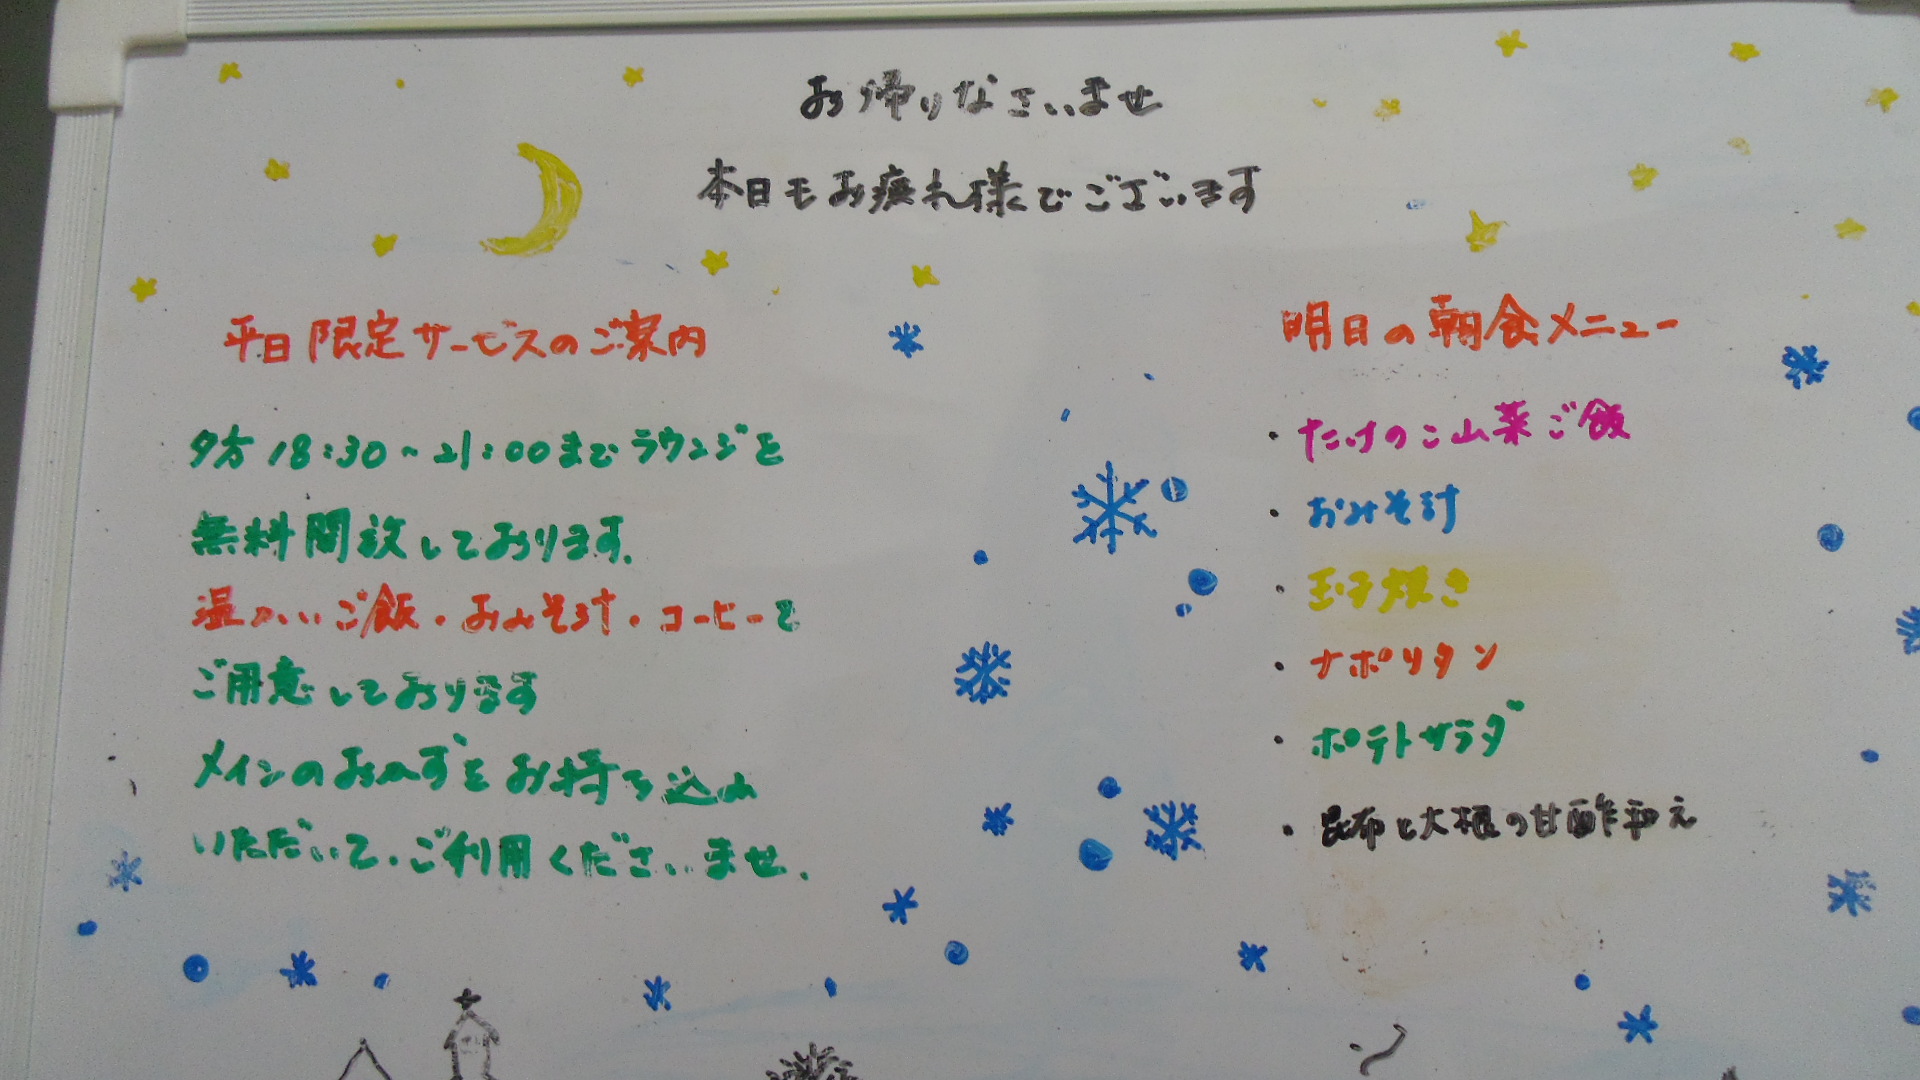 お帰りなさいませ
本日もお疲れ様でございます
平日限定サービスのご案内
夕方18:30~21:00までラウンジを
無料開放しております。
温かいご飯・おみそ汁・コーヒーを
ご用意しております
メインのおかずをお持ち込み
いただいて、ご利用くださいませ。
明日の朝食メニュー
・たけのこ山菜ご飯
・おみそ汁
・玉子焼き
・ナポリタン
・ポテトサラダ
・昆布と大根の甘酢和え